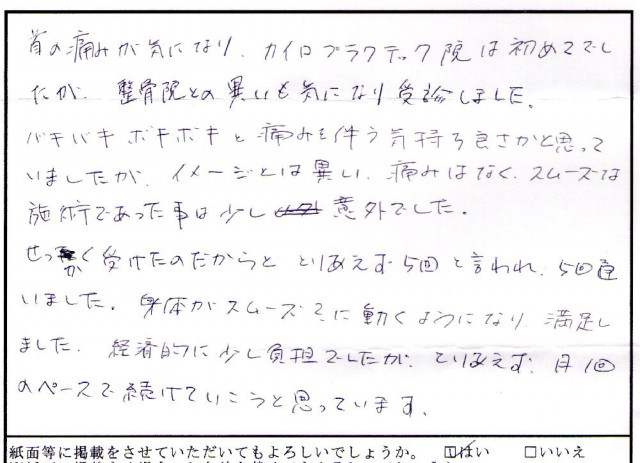 首の痛みが気になり、カイロプラクテック院は初めてでし
たが、整骨院との異いも気になり受診しました。
バキバキボキボキと痛みを伴う気持ち良さかと思って
いましたが、イメージとは異い、痛みはなく、スムーズな
施術であった事は少し意外でした。
せっかく受けたのだからと とりあえず5回と言われ、5回通
いました。身体がスムーズに動くようになり、満足し
ました。経済的に少し負担でしたが、とりあえず、月1回
のペースで続けていこうと思っています。
紙面等に掲載をさせていただいてもよろしいでしょうか。 ☑はい □いいえ